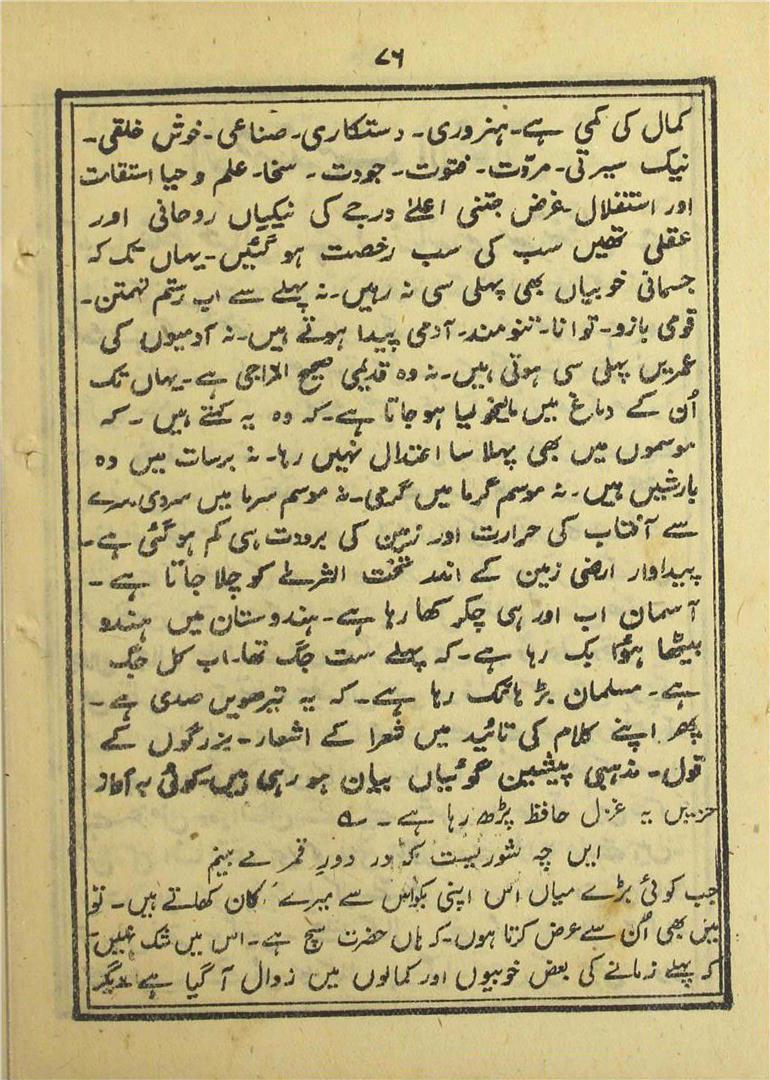 ۷۶
کمال کی کمی ہے۔ ہنروری۔ دستکاری۔ صناعی۔ خوش خلقی۔
نیک سیرتی۔ مروّت۔ فتوت۔ جودت۔ سخا۔ علم و حیا استقات
اور استقلال۔ غرض جتنی اعلےٰ درجے کی نیکیاں روحانی اور
عقلی تھیں سب کی سب رخصت ہو گئیں۔ یہاں تک کہ
جسمانی خوبیاں بھی پہلی سی نہ رہیں۔ نہ پہلے سے اب رستم تہمتن۔
قومی بازو۔ توانا۔ تنومند۔ آدمی پیدا ہوتے ہیں۔ نہ آدمیوں کی
عمریں پہلی سی ہوتی ہیں۔ نہ وہ قدیمی صحیح المزاجی ہے۔ یہاں تک
اُن کے دماغ میں مالیخولیا ہو جاتا ہے۔ کہ وہ یہ کہتے ہیں۔ کہ
موسموں میں بھی پہلا سا اعتدال نہیں رہا۔ نہ برسات میں وہ
بارشیں ہیں۔ نہ موسم گرما میں گرمی۔ نہ موسم سرما میں سردی
سے آفتاب کی حرارت اور زمین کی برودت ہی کم ہو گئی ہے۔
پیداوار ارضی زمین کے اندر تحت الثرےٰ کو چلا جاتا ہے۔
آسمان اب اور ہی چکر کھا رہا ہے۔ ہندوستان میں ہندو
بیٹھا ہؤا بک رہا ہے۔ کہ پہلے ست جگ تھا۔ اب کل جگ
ہے۔ مسلمان بڑ ہانک رہا ہے۔ کہ یہ تیرھویں صدی ہے۔
پھر اپنے کلام کی تائید میں شعرا کے اشعار۔ بزرگوں کے
قول۔ مذہبی پیشین گوئیاں بیان ہو رہی ہیں۔ کوئی بہ آواز
حزیں یہ غزل حافظ پڑھ رہا ہے۔ ؎
ایں چہ شوریست کہ در دورِ قمر مے بینم
جب کوئی بڑے میاں اس اپنی بکواس سے میرے کان کھاتے ہیں۔ تو
میں بھی اُن سے عرض کرتا ہوں۔ کہ ہاں حضرت سچ ہے۔ اس میں شک نہیں۔
کہ پہلے زمانے کی بعض خوبیوں اور کمالوں میں زوال آ گیا ہے۔ مگر